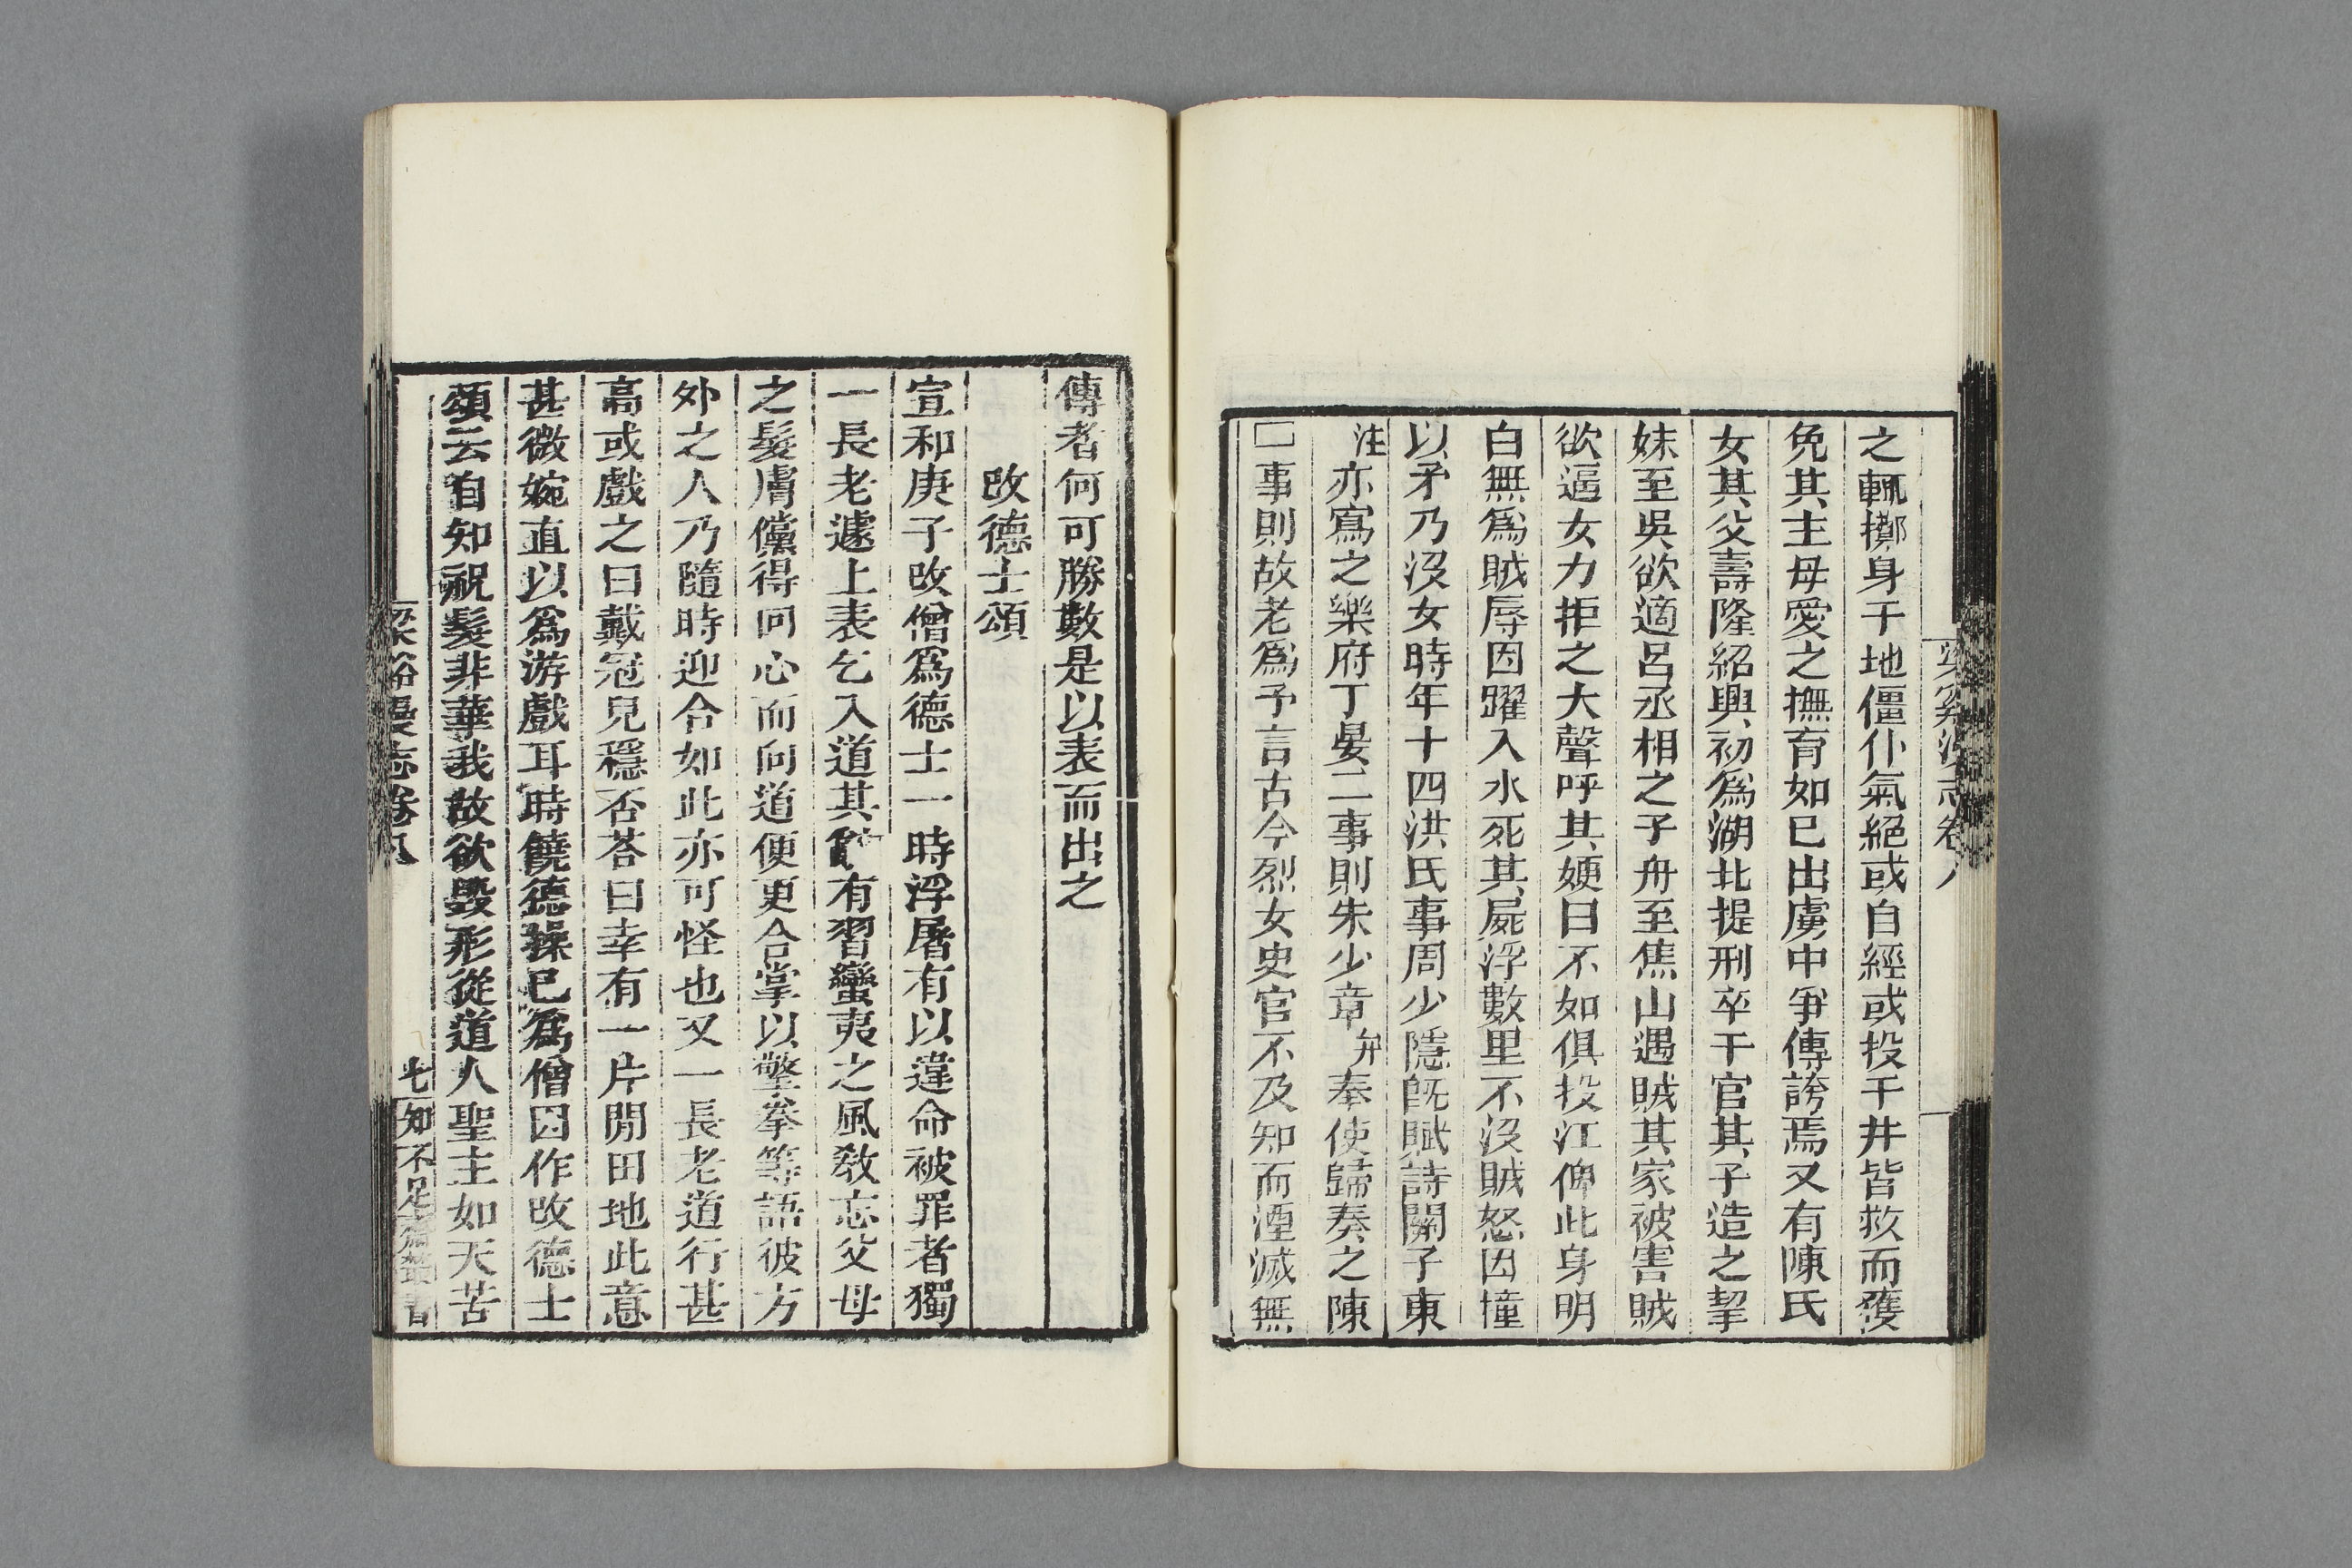 之輒擲身于地僵仆氣絕或自經或投于井皆救而獲
免其主母愛之撫育如已出虜中爭傳誇焉又有陳氏
女其父壽隆紹興初爲湖北提刑卒于官其子造之挈
妹至吳欲適呂丞相之子舟至焦山遇賊其家被害賊
欲逼女力拒之大聲呼其㛐曰不如俱投江俾此身明
白無爲賊辱因躍入水死其屍浮數里不沒賊怒因撞
以矛乃沒女時年十四洪氏事周少隱旣賦詩關子東
注亦寫之樂府丁晏二事則朱少章弁奉使歸奏之陳
□事則故老爲予言古今烈女史官不及知而湮滅無
傳者何可勝數是以表而出之
改德士頌
宣和庚子改僧爲德士一時浮屠有以違命被罪者獨
一長老遽上表乞入道其有習蠻夷之風敎忘父母
之髮膚儻得回心而向道便更合掌以擎拳等語彼方
外之人乃隨時迎合如此亦可怪也又一長老道行甚
高或戲之曰戴冠兒穩否荅曰幸有一片閒田地此意
甚微婉直以爲游戲耳時饒德操已爲僧因作改德士
頌云自知祝髮非華我故欲毀形從道人聖主如天苦
梁谿漫志卷八
七
知不足齋叢書